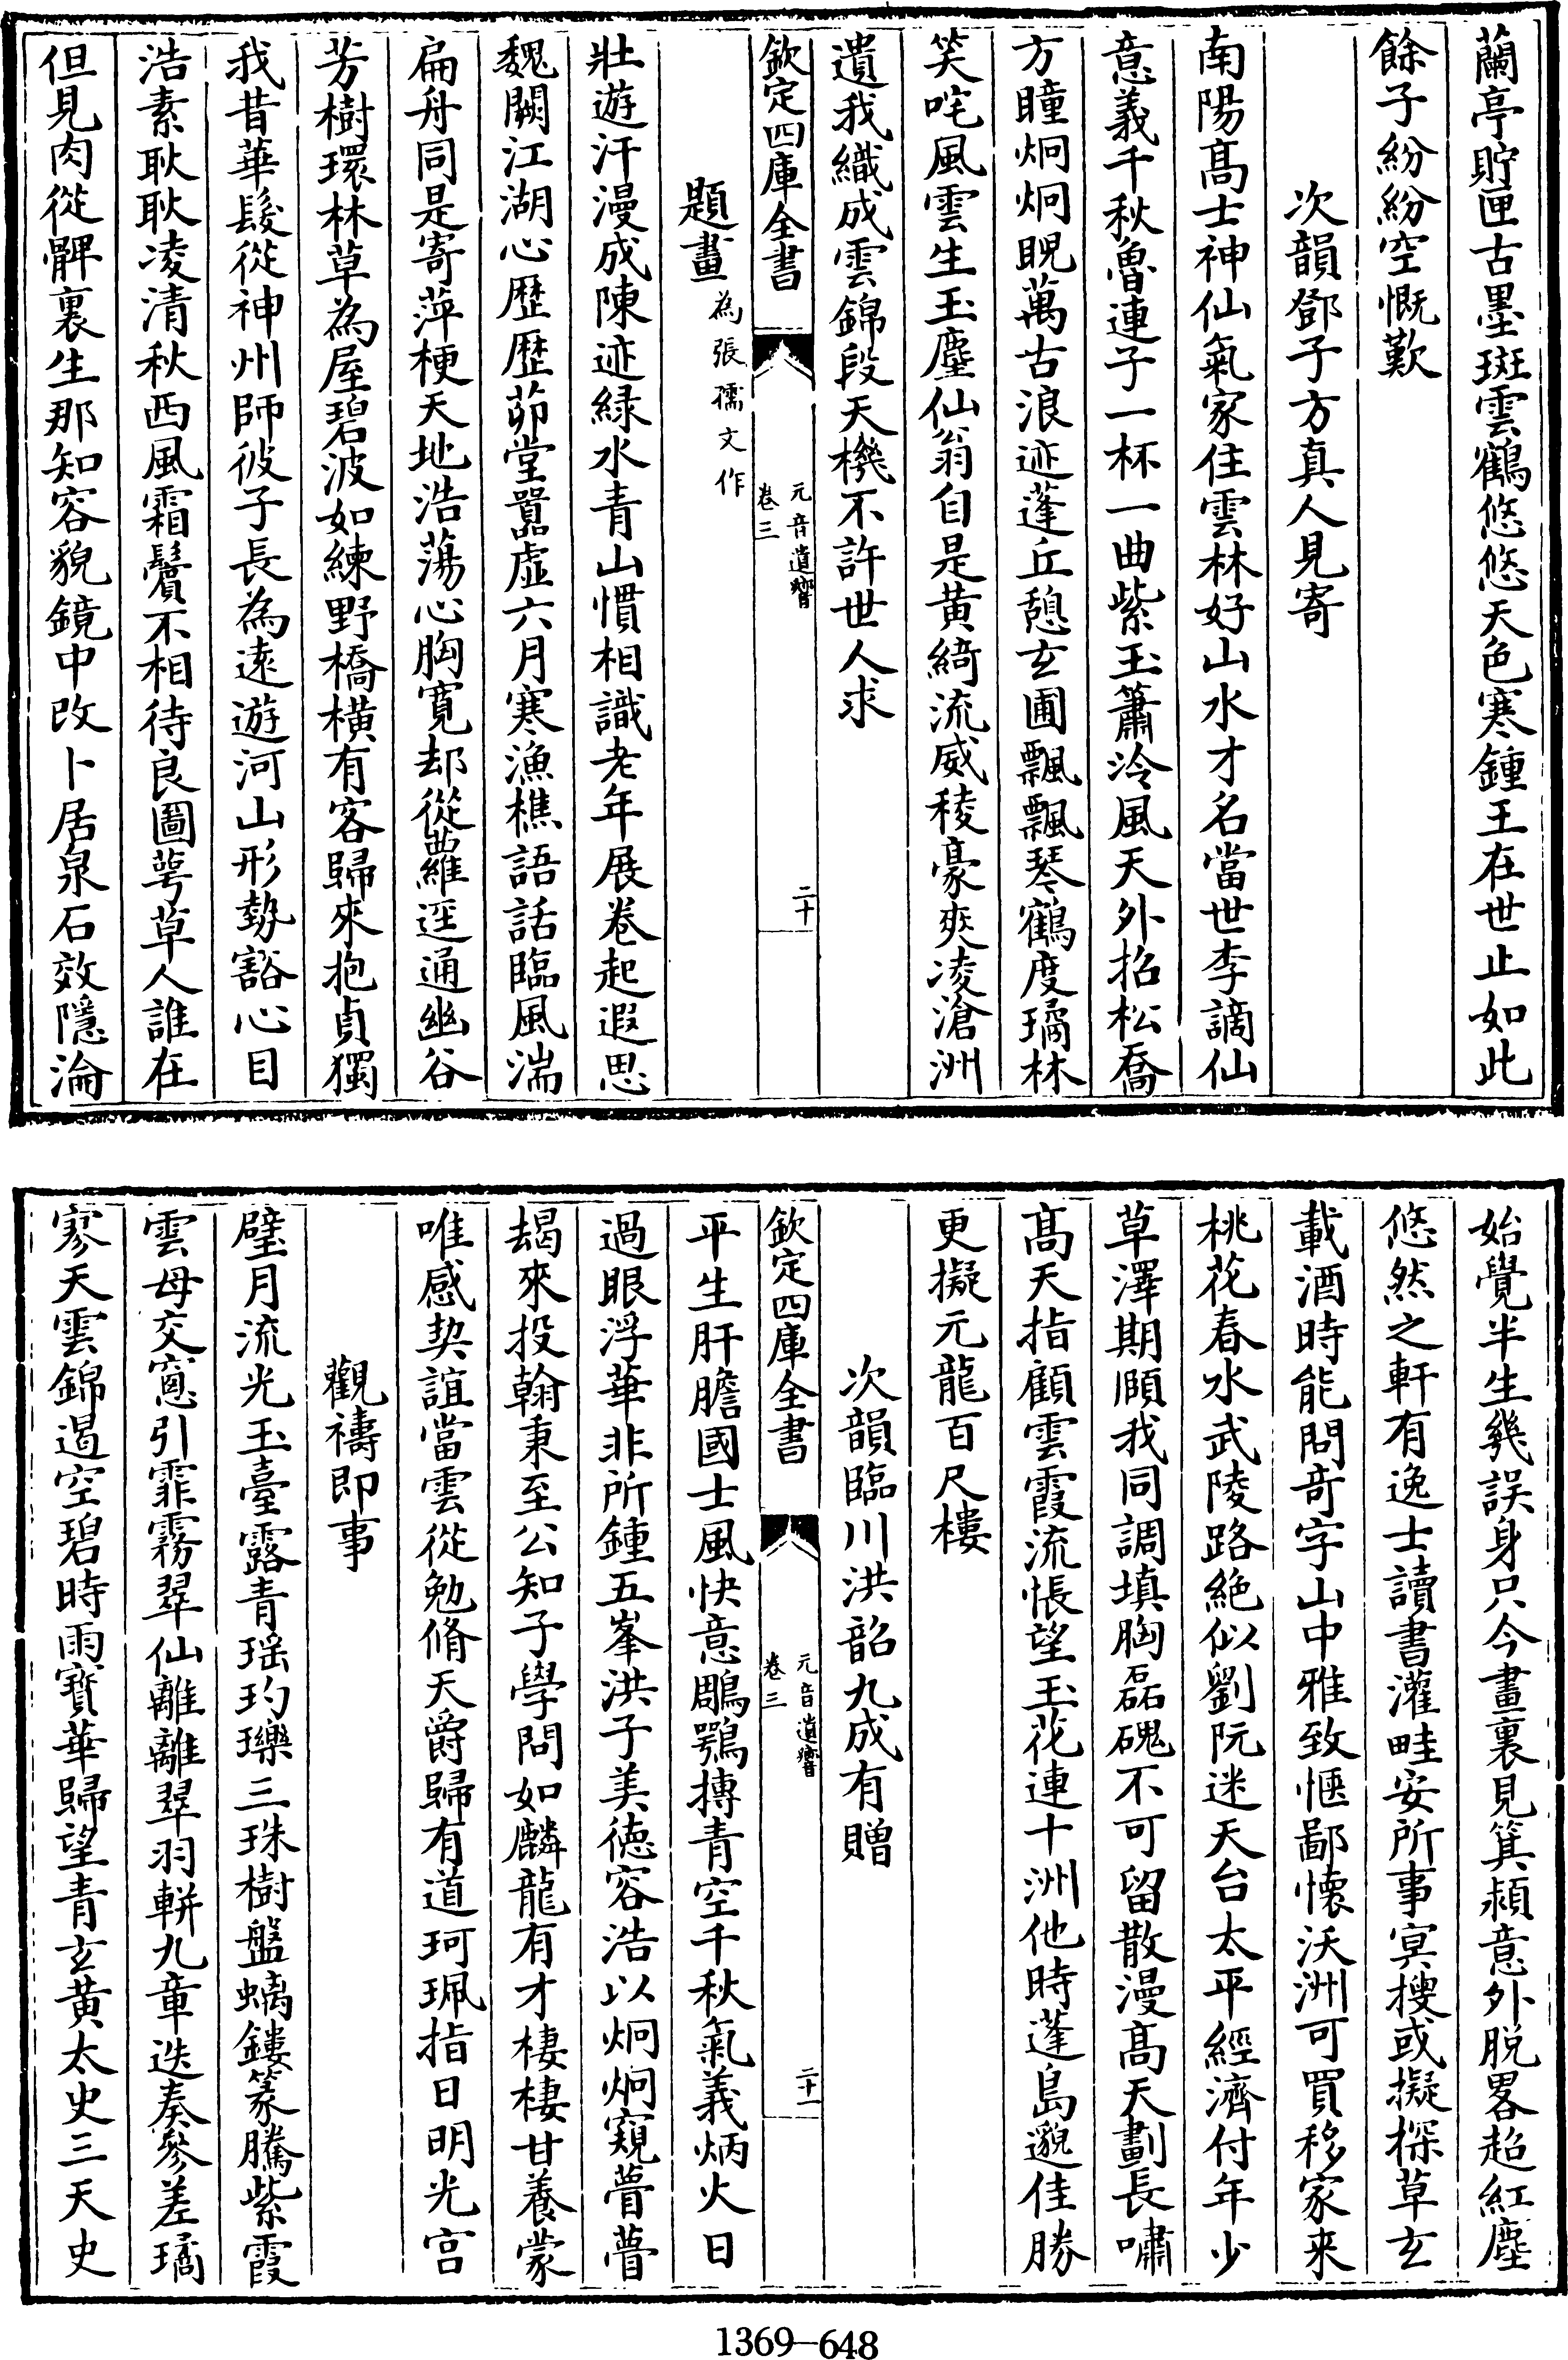 蘭亭貯匣古墨斑雲鶴悠悠天色寒鍾王在世止如此
餘子紛紛空慨歎
次韻鄧子方真人見寄
南陽髙士神仙氣家住雲林好山水才名當世李謫仙
意義千秋魯連子一杯一曲紫玉簫泠風天外招松喬
方瞳炯炯眂萬古浪迹蓬丘憩玄圃飄飄琴鶴度璚林
笑咤風雲生玉麈仙翁自是黄綺流威稜豪爽凌滄洲
遺我織成雲錦段天機不許世人求
欽定四庫全書
元音遺響
卷三
二十
題畫為張孺文作
壯遊汗漫成陳迹緑水青山慣相識老年展卷起遐思
魏闕江湖心歴歴茆堂囂虚六月寒漁樵語話臨風湍
扁舟同是寄萍梗天地浩蕩心胸寛却從蘿逕通幽谷
芳樹環林草為屋碧波如練野橋横有客歸來抱貞獨
我昔華髮從神州師彼子長為遠遊河山形勢豁心目
浩素耿耿凌清秋西風霜鬢不相待良圖蕚草人誰在
但見肉從髀裏生那知容貌鏡中改卜居泉石效隱淪
始覺半生㡬誤身只今畫裏見箕潁意外脱畧超紅塵
悠然之軒有逸士讀書灌畦安所事㝠搜或擬探草玄
載酒時能問竒字山中雅致愜鄙懐沃洲可買移家来
桃花春水武陵路絶似劉阮迷天台太平經濟付年少
草澤期頥我同調填胸磊磈不可留散漫髙天劃長嘯
髙天指顧雲霞流悵望玉花連十洲他時蓬島邈佳勝
更擬元龍百尺樓
次韻臨川洪韶九成有贈
欽定四庫全書
元音遺響
卷三
二十一
平生肝膽國士風快意鵰鶚摶青空千秋氣義炳火日
過眼浮華非所鍾五峯洪子美徳容浩以炯炯窺瞢瞢
朅來投翰秉至公知子學問如麟龍有才棲棲甘養蒙
唯感契誼當雲從勉脩天爵歸有道珂珮指日明光宫
觀禱即事
璧月流光玉臺露青瑶玓瓅三珠樹盤螭鏤篆騰紫霞
雲母交窻引霏霧翠仙離離翠羽輧九章迭奏參差璚
寥天雲錦過空碧時雨寳華歸望青玄黄太史三天史
1369—648